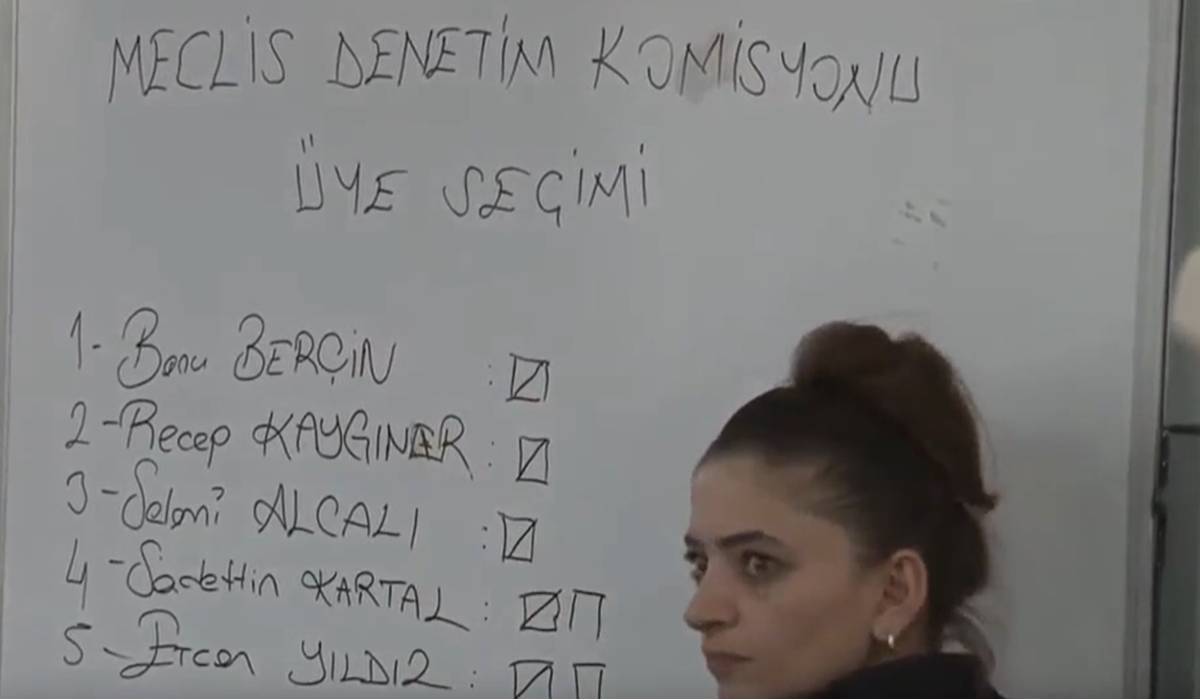 MECLİS DENETİM KOMİSYONU
ÜYE SEÇİMİ
1- Banu BERÇİN :
2- Recep KAYGINER :
3- Selami ALÇALI :
4- Sadettin KARTAL :
5- Ercan YILDIZ :